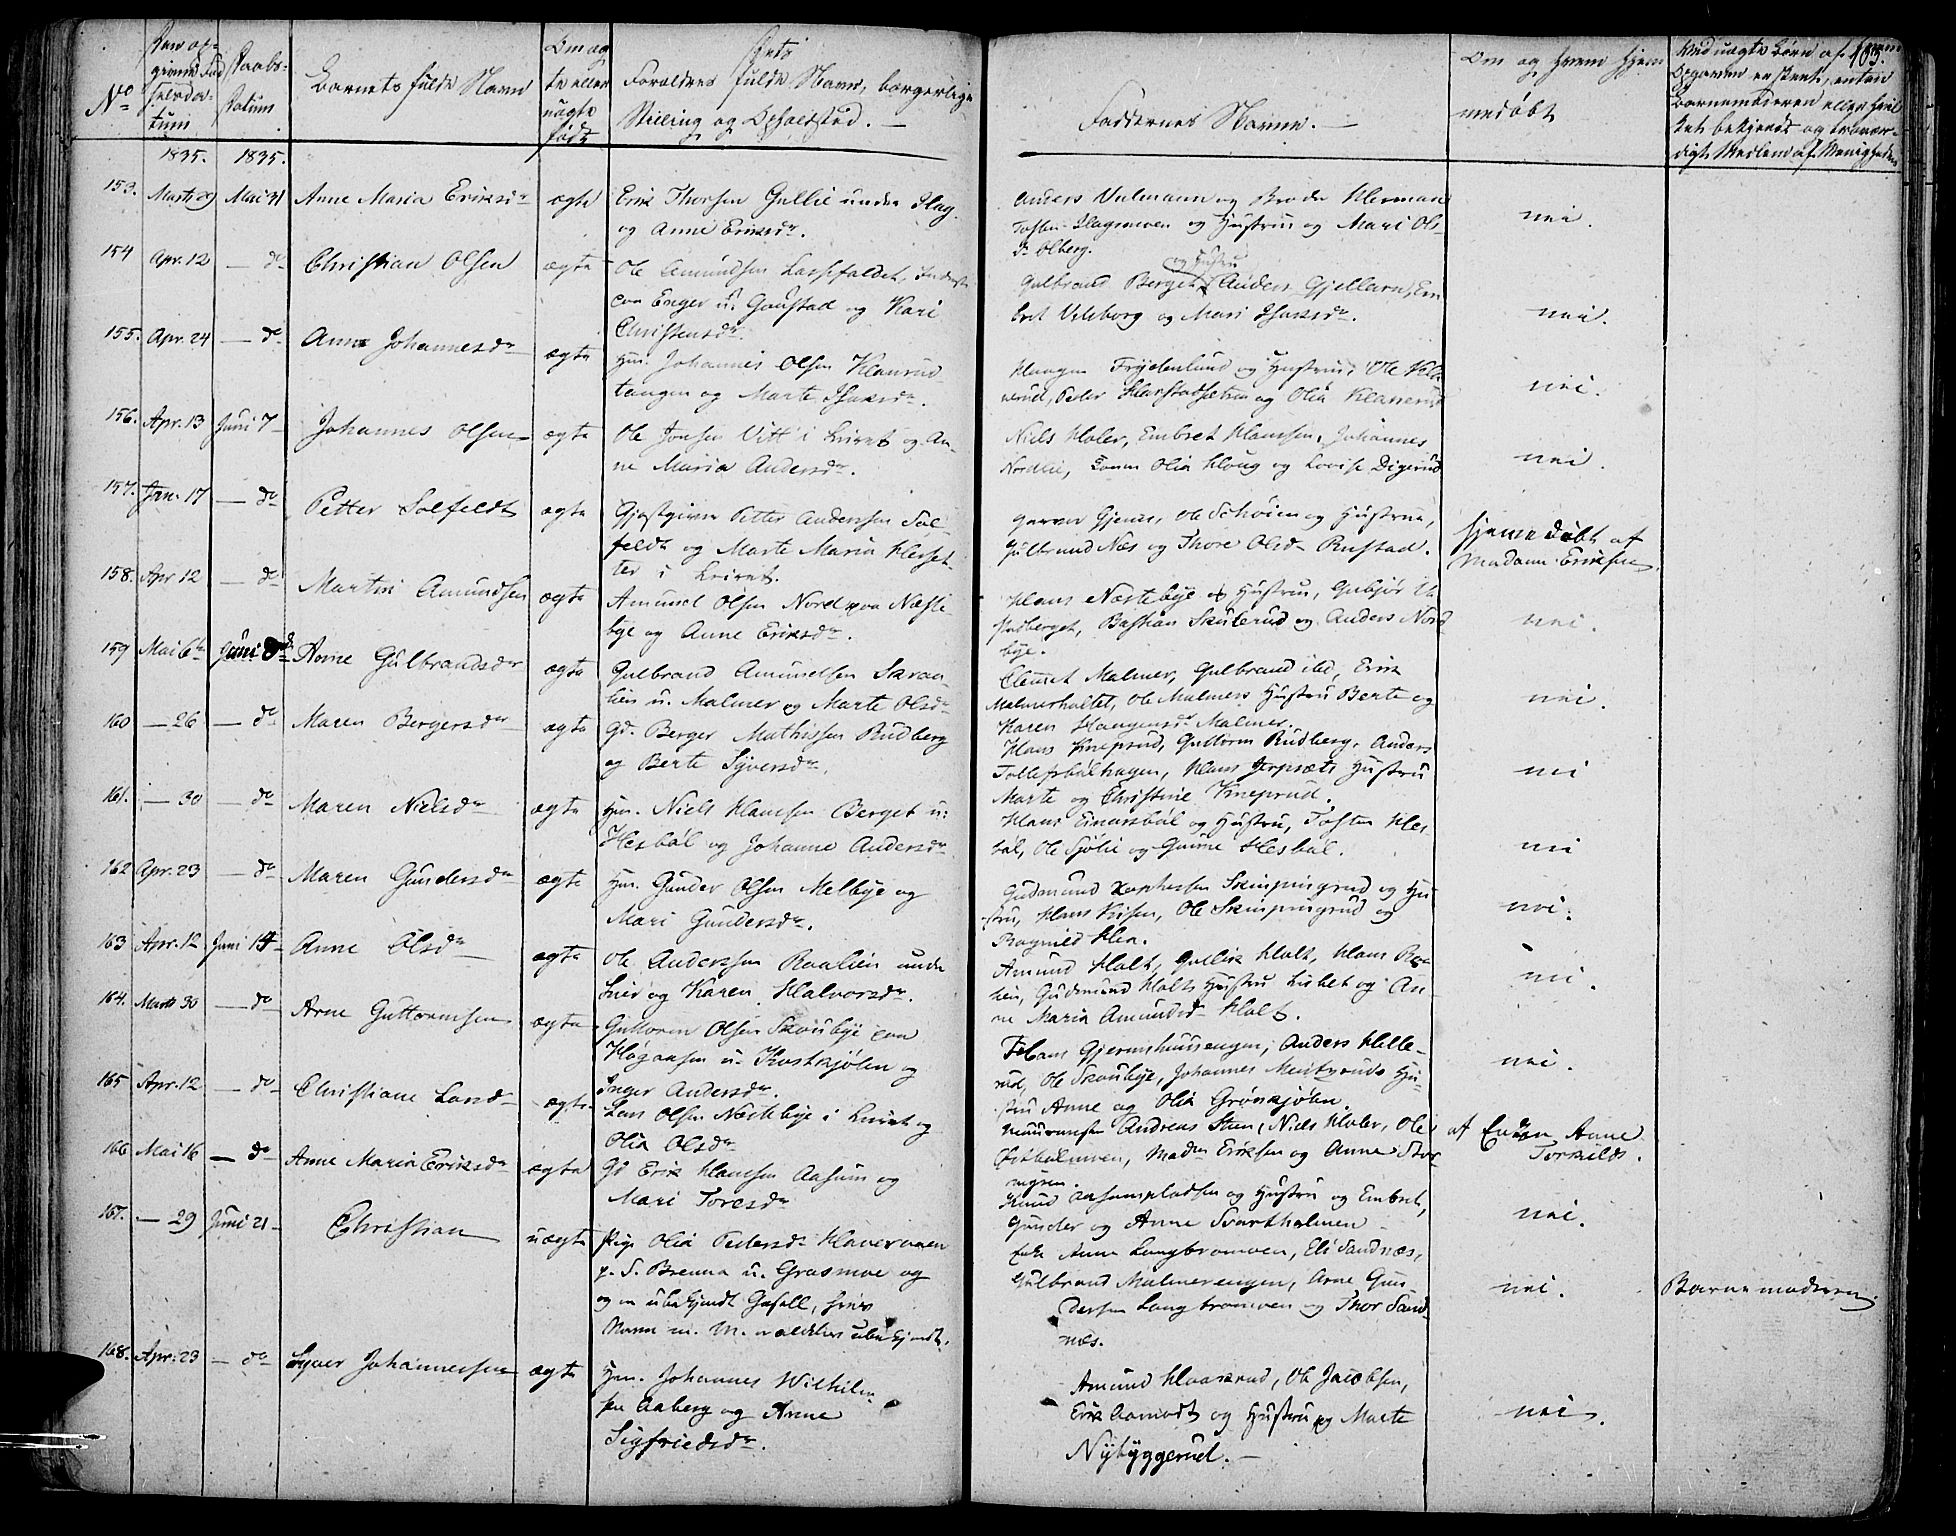 103.
No
Daabs-
Datum
Barnets fulde Navn
Om æg
te eller
uægte
født
Forældres fulde Navn, borgerlige
Stilling og Opholdsted. —
Faddernes Navne. —
Om og hvem hjem
medøbt
1835. 1835.
153. Marts 29 Mai 31 Anne Maria Eriksdr ægte Erik Thorsen Gullie under Flag.
og Anne Eriksdr.
Anders Ulmann og Broder Herman
Tosten Flagmoen og Hustru og Mari Ols-
Dr Olberg.
nei.
154 Apr. 12 — do Christian Olsen ægte Ole Amundsen Lassefaldet, Inderste
paa Enger u. Goustad og Kari
Christensdr.
og Hustru
Gulbrand Berget, Anders Gjellarn, Em
bret Velsborg og Mari Isaksdr.
nei.
155. Apr. 24 — do Anne Johannesdr ægte Hm. Johannes Olsen Klanrud
tangen og Marte Isaksdr.
Haagen Frydenlund og Hustru, Ole Kla
nerud, Peder Harstadsetren og Olia Klanerud
nei.
156. Apr. 13 Juni 7 Johannes Olsen ægte Ole Jonsen Vitt i Leiret og An-
ne Maria Andersdr.
Niels Holer, Embret Hansen, Johannes
Nordlie, Olia Houg og Lovise Digerud
nei.
157. Jan. 17 — do Petter Solfeldt ægte Gjestgiver Petter Andersen Sol
feldt og Marte Maria Herset-
ter i Leiret.
Gjems, Ole Schøien og Hustrue,
Gulbrand Næs og Thore Olsdr Rustad.
hjemmedøbt af
Madam Eriksen
158. Apr 12 — do Martin Amundsen ægte Amund Olsen Nord paa Næste
bye og Anne Eriksdr.
Hans Nestebye og Hustru, Gubjør
berget, Bastian Skulerud og Anders Nord
bye.
nei.
159 Mai 6te Juni 8de Anne Gulbrandsdr ægte Gulbrand Amundsen Skraa-
lien u. Malmer og Marte Olsdr
Clemet Malmer, Gulbrand ibd, Erik
Malmerholtet, Ole Malmers Hustru Berte og
Karen Haagensdr Malmer.
nei.
160 — 26 — do Maren Bergersdr ægte Gd. Berger Mathisen Rudberg
og Berte Syversdr.
Hans Kneprud, Guttorm Rudberg, Anders
Tollefsbølhagen, Hans Jerpsæts Hustru
Marte og Christine Kneprud.
nei
161. — 30 — do Maren Nielsdr ægte Hm. Niels Hansen Berget u.
Hesbøl og Johanne Andersdr
Hans Einarsbøl og Hustru, Tosten Hes
bøl, Ole Sjølie og Gunne Hesbøl.
nei
162 Apr. 23 — do Maren Gundersdr ægte Hm. Gunder Olsen Melbye og
Mari Gundersdr.
Gudmund Skinpingrud og Hu
stru, Hans Ole Skinpingrud og
Ragnild Hen.
nei.
163 Apr. 12 Juni 14 Anne Olsdr ægte Ole Andersen Raalien under
Lier og Karen Halvorsdr.
Amund Holt, Gullik Holt, Hans Ra-
lien, Gudmund Holts Hustru Lisbet og An-
ne Maria Amundsdr Holt.
nei.
164. Marts 30 — do Arne Guttormsen ægte Guttorm Olsen Skoubye paa
Høgaasen u. Kostkjølen og
Inger Andersdr.
Hans Gjermshusengen, Anders Helle-
rud, Ole Skoubye, Johannes Hu-
stru Anne og Olia Grønkjølen.
nei.
165 Apr. 12 — do Christiane Larsdr ægte Lars Olsen Nestebye i Leiret og
Olia Olsdr
Andreas Steen, Niels Holer, Ole
Østholmoen, Madm Eriksen og Anne Stor-
myren.
af Enken Anne
Torkilds.
166 Mai 16 — do Anne Maria Eriksdr ægte Gd Erik Hansen Aasum og
Mari Toresdr
Knud Aasumpladsen og Hustru og Embret,
Gunder og Anne Svartholmen
nei.
167. — 29 Juni 21 Christian uægte Pige Olia Pedersdr Haavermoen
p. S. Brenna u. Grasmoe og
og en ubekjendt Gesell, hvis
Navn m. M. ubekjendt.
Enke Anne Langbromoen, Eli Sandnæs,
Gulbrand Malmerengen, Arne Gun
dersen Langbromoen og Thor Sand
næs.
nei.
Barnemoderen
168. Apr. 23 — do Syver Johannessen ægte Hm. Johannes Wilhelm
sen Aaberg og Anne
Sigfriedsdr.
Amund Haaskrud, Ole Jacobsen,
Erik Aamodt og Hustru og Marte
Nybyggerud. —
nei.